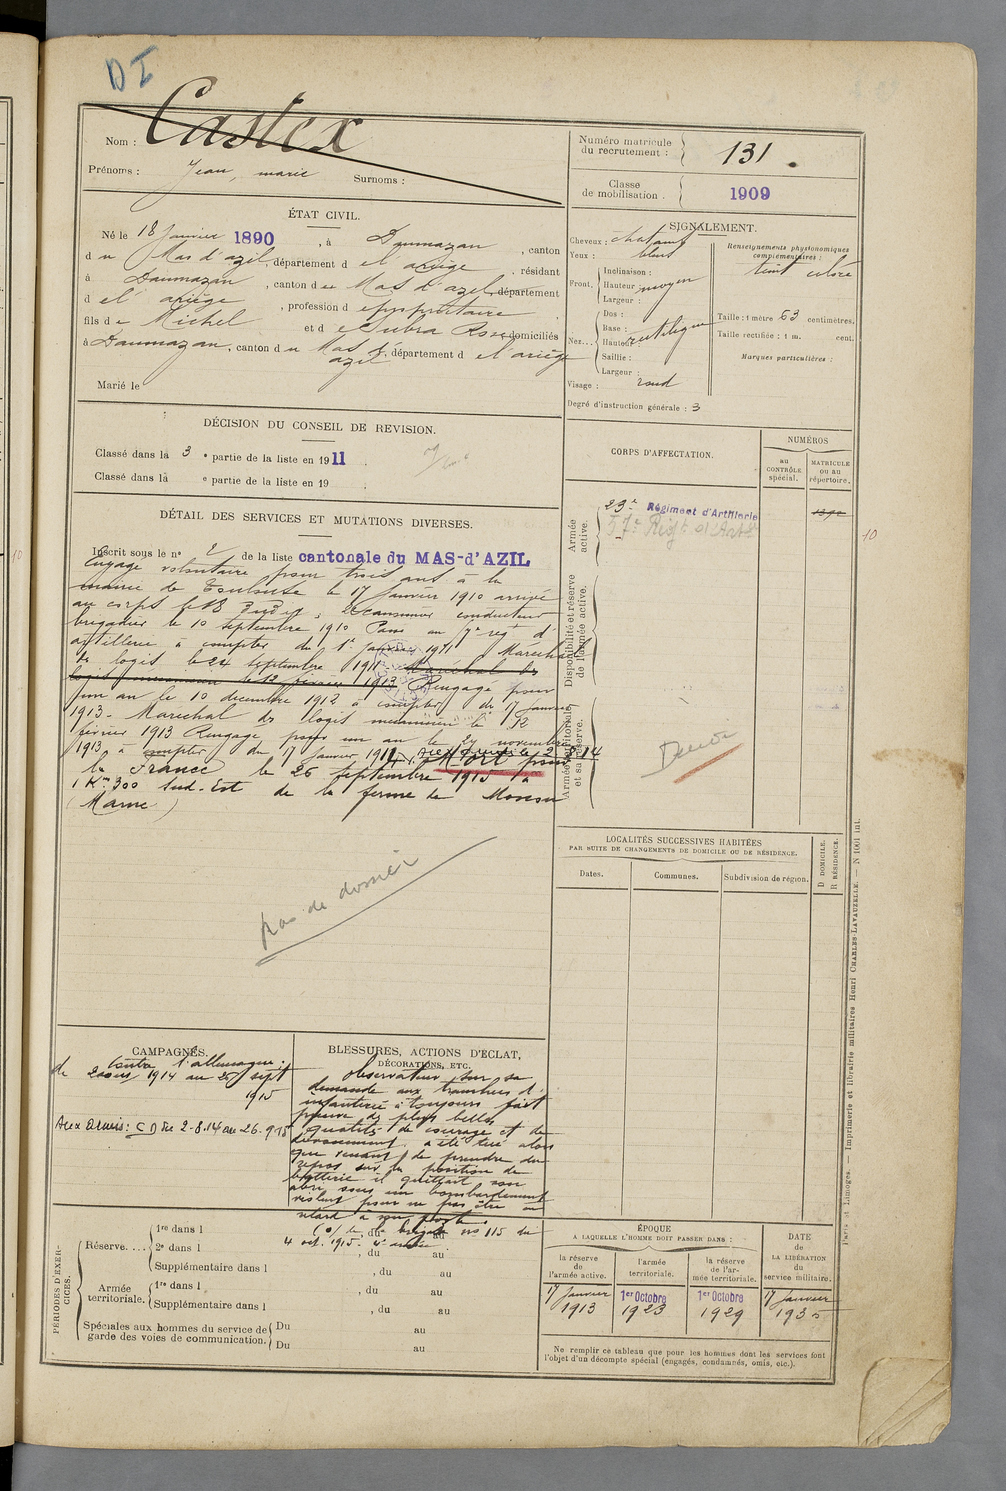 DI
Nom : Castex
Prénoms : Jean, marie Surnoms :
Numéro matricule du recrutement : 131.
Classe de mobilisation . 1909
ÉTAT CIVIL.
Né le 18 Janvier 1890, à Daumazan, canton
du Mas d'azil, département de l'ariège, résidant
à Daumazan, canton de Mas d'azil, département
de l'ariège, profession de propriétaire
fils de Michel et de Subra Rose domiciliés
à Daumazan, canton du Mas d'azil, département de l'ariège
Marié le
SIGNALEMENT.
Cheveux : chatains
Yeux : bleus
Front. Inclinaison :
Hauteur : moyen
Largeur :
Nez... Dos :
Base :
Hauteur : rectiligne
Saillie :
Largeur :
Visage : rond
Renseignements physionomiques complémentaires :
teint coloré
Taille : 1 mètre 63 centimètres.
Taille rectifiée : 1 m. cent.
Marques particulières :
Degré d'instruction générale : 3
DÉCISION DU CONSEIL DE REVISION.
Classé dans la 3 e partie de la liste en 1911
Classé dans la e partie de la liste en 19
CORPS D'AFFECTATION.
NUMÉROS
au CONTRÔLE spécial.
MATRICULE ou au répertoire.
Armée active.
23e Régiment d'Artillerie
57e Regt d'Artie
Disponibilité et réserve de l'armée active.
Armée territoriale et sa réserve.
DÉTAIL DES SERVICES ET MUTATIONS DIVERSES.
Inscrit sous le n° 2 de la liste cantonale du MAS-d'AZIL
Engagé volontaire pour trois ans à la
mairie de Toulouse le 17 Janvier 1910 arrivé
au corps le 18 Du dit, 2e canonnier conducteur
brigadier le 10 septembre 1910 Passé au 9e regt d'
artillerie à compter du 1er janvier 1911 Maréchal
des logis le 24 septembre 1911 Maréchal des
logis le 12 février 1913 Rengagé pour
un an le 10 decembre 1912 à compter du 17 Janvier
1913. Maréchal des logis le 12
février 1913 Rengagé pour un an le 29 novembre
1913 à compter du 17 Janvier 1914, Aux Armées le 2-8-14 Mort pour
la France le 26 Septembre 1915 à
1 Km 300 Sud-Est de la ferme de
(Marne)
pas de domici
LOCALITÉS SUCCESSIVES HABITÉES
PAR SUITE DE CHANGEMENTS DE DOMICILE OU DE RÉSIDENCE.
Dates. Communes. Subdivision de région. D DOMICILE. R RÉSIDENCE.
CAMPAGNES.
Contre l'allemagne :
de 2 août 1914 au 26 sept
1915
Aux Armées : CD du 2-8.14 au 26.9.15
BLESSURES, ACTIONS D'ÉCLAT, DÉCORATIONS, ETC.
Observateur sur sa
demande aux tranchées d'
infanterie à toujours fait
preuve des plus belles
qualités de courage et de
dévouement. a été tué alors
que venant de prendre du
repos sur la position de
batterie il quittait son
abri sous un bombardement
violent pour ne pas être en
retard à son poste.
brigade no 115 du
4 oct. 1915. 4e armée
PÉRIODES D'EXERCICES.
Réserve.... 1re dans l , du au
2e dans l , du au
Supplémentaire dans l , du au
Armée territoriale. 1re dans l , du au
Supplémentaire dans l , du au
Spéciales aux hommes du service de garde des voies de communication. Du au
Du au
ÉPOQUE
A LAQUELLE L'HOMME DOIT PASSER DANS :
la réserve de l'armée active.
l'armée territoriale.
la réserve de l'armée territoriale.
DATE de LA LIBÉRATION du service militaire.
17 Janvier 1913
1er Octobre 1923
1er Octobre 1929
17 Janvier 1935
Ne remplir ce tableau que pour les hommes dont les services font
l'objet d'un décompte spécial (engagés, condamnés, omis, etc.).
Paris et Limoges. — Imprimerie et librairie militaires Henri CHARLES-LAVAUZELLE. — N 1001 int.
10